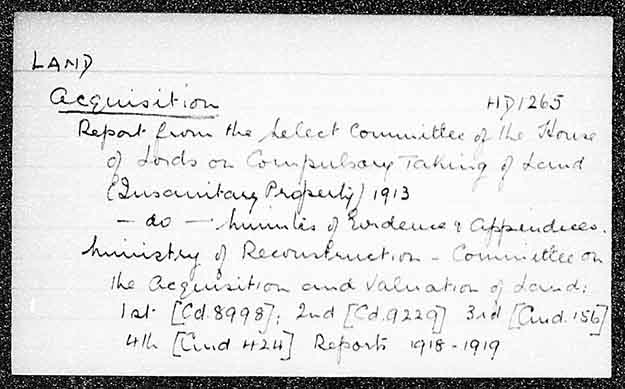 LAND
Acquisition HD1265
Report from the Select Committee of the House
of Lords on Compulsory Taking of Land
(Insanitary Property) 1913
— do — Minutes of Evidence & Appendices.
Ministry of Reconstruction - Committee on
the Acquisition and Valuation of Land:
1st [Cd.8998]; 2nd [Cd.9229] 3rd [Cmd.156]
4th [Cmd 424] Reports 1918-1919